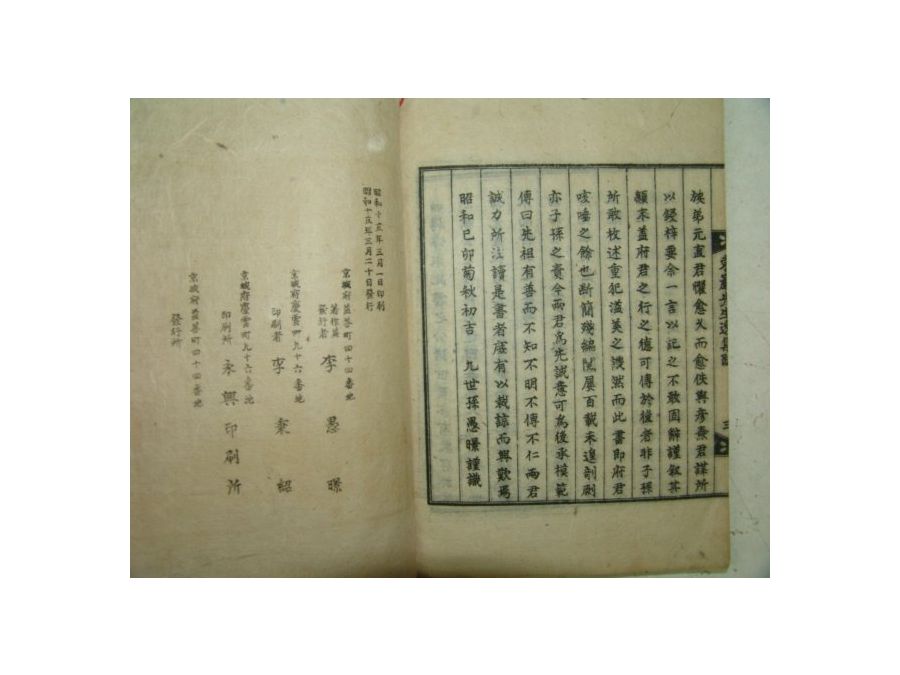 族弟元直君懼愈久而愈佚與彦熹君謀所
以鋟梓要余一言以記之不敢固辭謹叙其
顚末盖府君之行之德可傳於後者非子孫
所敢枚述重犯滥美之譏然而此書即府君
咳唾之餘也断簡殘編閱屢百載未遑剞劂
亦子孫之責今两君爲先誠意可爲後承模範
傳曰先祖有善而不知不明不傳不仁两君
誠力所注讀是書者庶有以栽諒而興歎焉
昭和己卯菊秋初吉九世孫愚㬇謹識
昭和十五年三月一日印刷
昭和十五年三月二十日發行
京城府益善町四十四番地
著作兼發行者 李愚㬇
京城府慶雲町九十六番地
印刷者 李秉
京城府慶雲町九十六番地
印刷所 永興印刷所
京城府益善町四十四番地
發行所